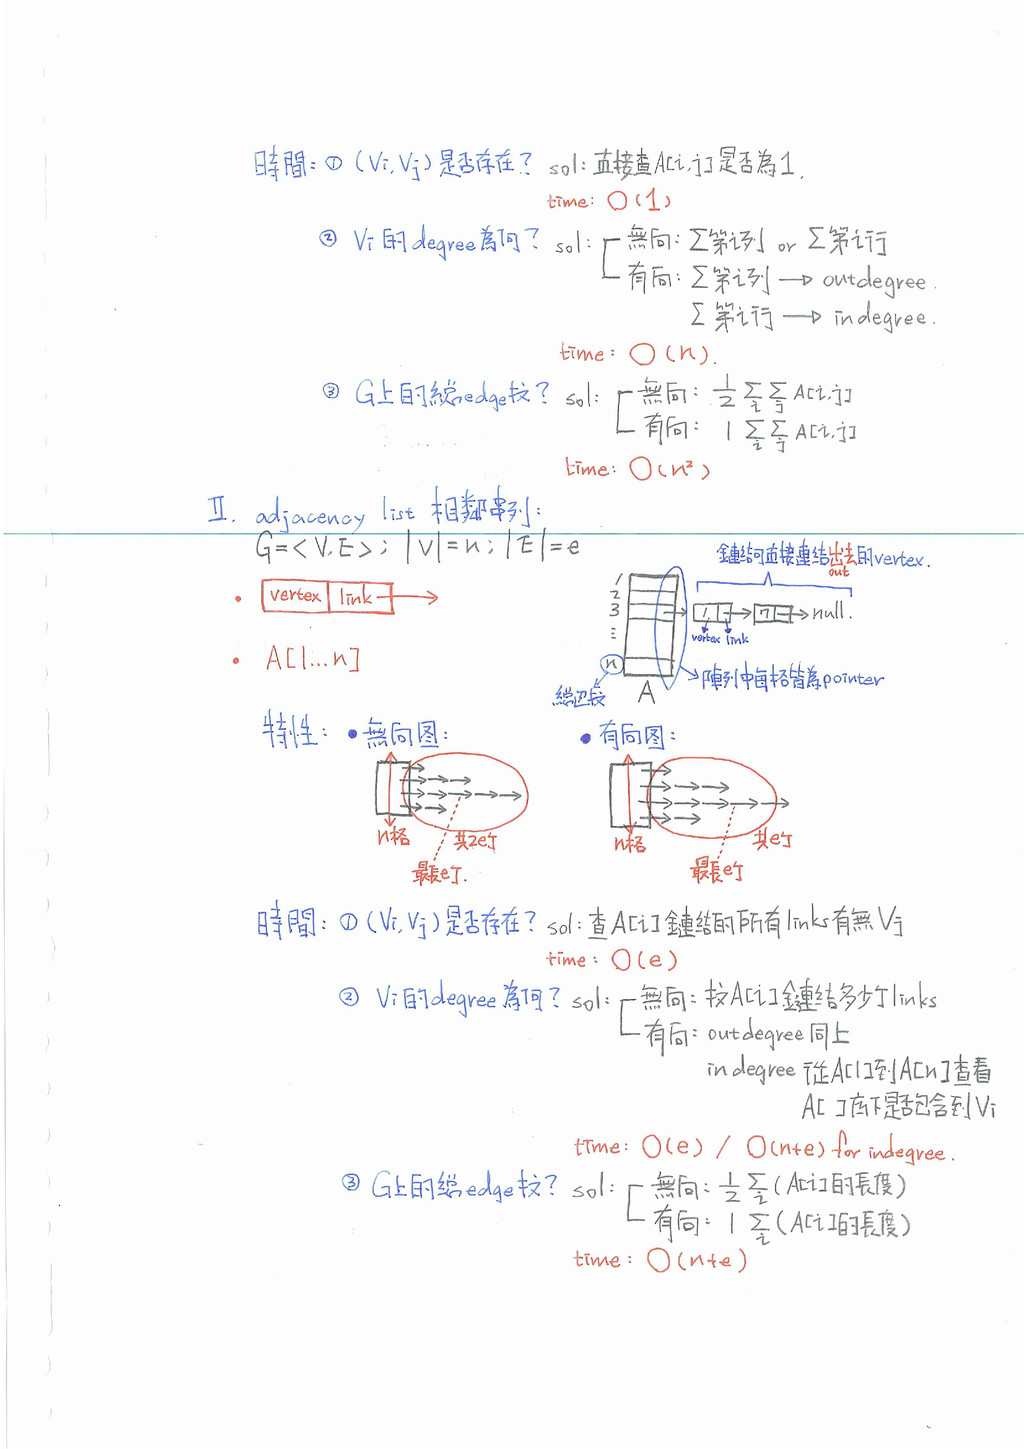 時間: ① (Vi, Vj) 是否存在? sol: 直接查A[i,j]是否為1.
time: O(1)
② Vi 的 degree 為何? sol: 無向: Σ第i列 or Σ第i行
有向: Σ第i列 → outdegree.
Σ第i行 → indegree.
time: O(n).
③ G上的總edge數? sol: 無向: 1/2 Σi Σj A[i,j]
有向: 1 Σi Σj A[i,j]
time: O(n²)
II. adjacency list 相鄰串列:
G=<V,E>; |V|=n; |E|=e
鏈結可直接連結出去的vertex.
out
• vertex link →
1
2
3
⋮
n
1 → 7 → null.
vertex link
• A[1...n]
陣列中每格皆為pointer
A
特性: • 無向图: • 有向图:
n格 共2e个 n格 共e个
最長e个. 最長e个
時間: ① (Vi, Vj) 是否存在? sol: 查A[i]鏈結的所有links有無Vj
time: O(e)
② Vi 的degree 為何? sol: 無向: 數A[i]鏈結多少个links
有向: outdegree同上
indegree 從A[1]到A[n]查看
A[ ]底下是否包含到Vi
time: O(e) / O(n+e) for indegree.
③ G上的總edge數? sol: 無向: 1/2 Σi (A[i]的長度)
有向: 1 Σi (A[i]的長度)
time: O(n+e)